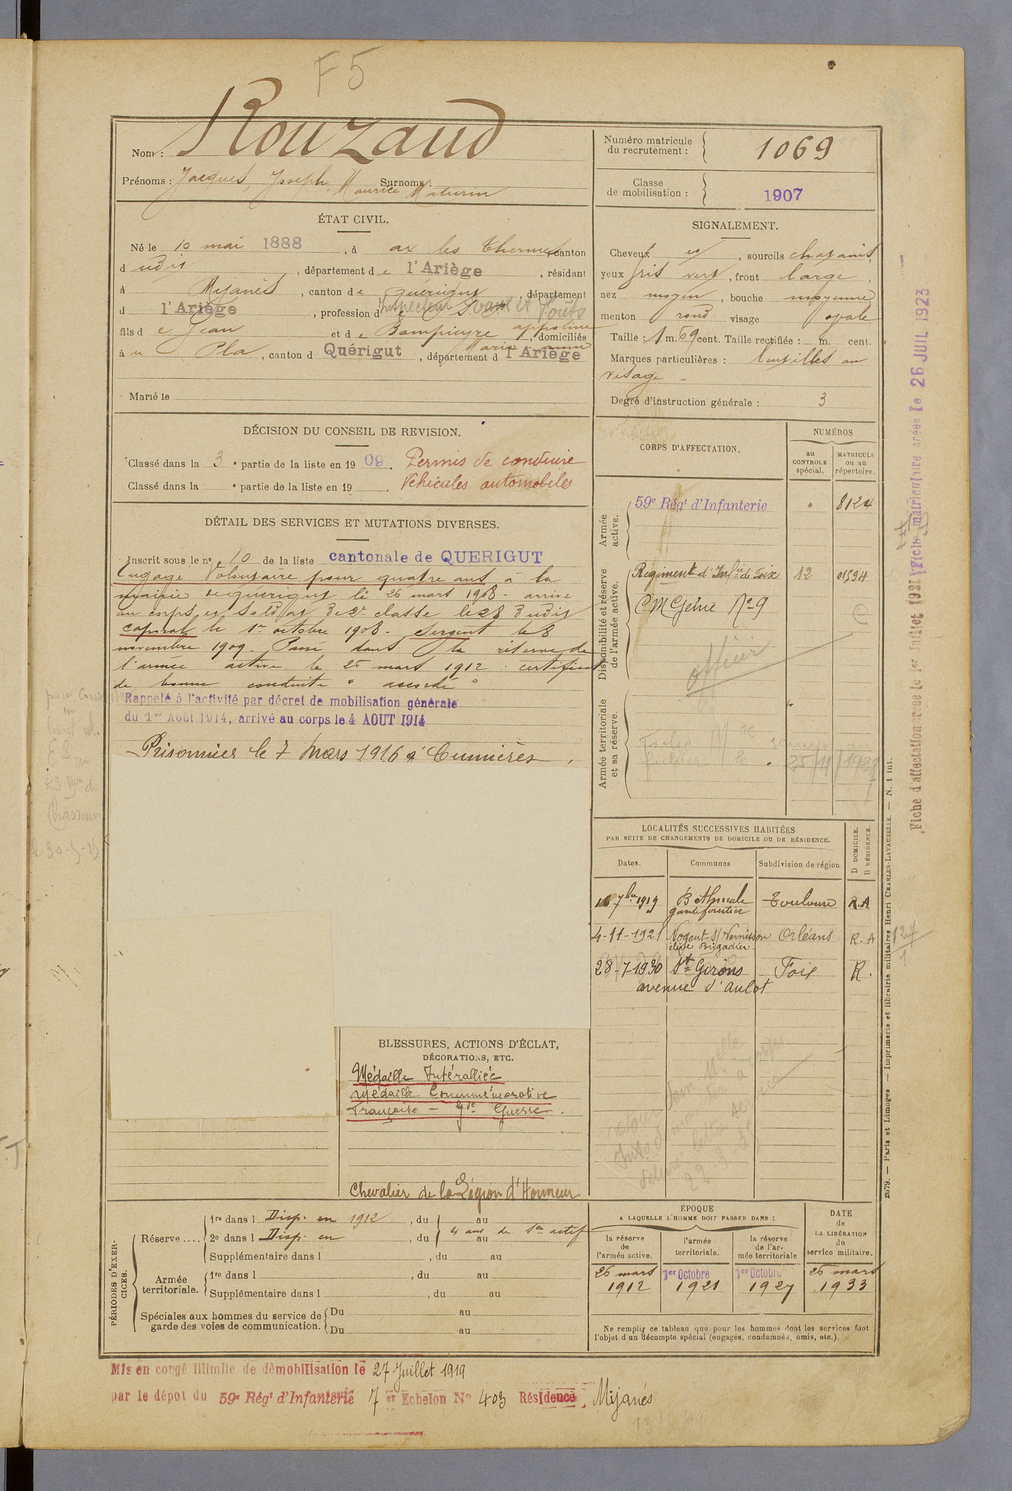 F5
Nom : Rouzaud
Prénoms : Jacques, Joseph, Maurice Maturin Surnoms :
ÉTAT CIVIL.
Né le 10 mai 1888, à ax les Thermes, canton
d udit, département de l'Ariège, résidant
à Mijanès, canton de Quérigut, département
d l'Ariège, profession d Inspecteur Eaux et Forêts
fils de Jean et de Bompieyre appoline
Marie, domiciliés
à u Pla, canton d Quérigut, département d l'Ariège
Marié le
DÉCISION DU CONSEIL DE REVISION.
Classé dans la 3e partie de la liste en 1909. Permis de conduire
Classé dans la e partie de la liste en 19 . Véhicules automobiles
DÉTAIL DES SERVICES ET MUTATIONS DIVERSES.
Inscrit sous le n° 10 de la liste cantonale de QUERIGUT
Engagé Volontaire pour quatre ans à la
mairie de querigut le 26 mars 1908 - arrivé
au corps et soldat de 2e classe le 28 dudit
caporal le 1er octobre 1908 - Sergent le 8
novembre 1909. Passé dans la réserve de
l'armée active le 26 mars 1912. certificat
de bonne conduite " accordé "
Rappelé à l'activité par décret de mobilisation générale
du 1er Août 1914, arrivé au corps le 4 AOUT 1914
Prisonnier le 7 Mars 1916 à Cumières.
BLESSURES, ACTIONS D'ÉCLAT,
DÉCORATIONS, ETC.
Médaille Interalliée
Médaille Commémorative
Française - Gde Guerre.
Chevalier de la Légion d'Honneur
PÉRIODES D'EXERCICES.
Réserve .... 1re dans l Disp. en 1912, du au
2e dans l Disp. en, du au
4 ans de Sce actif
Supplémentaire dans l , du au
Armée territoriale. 1re dans l , du au
Supplémentaire dans l , du au
Spéciales aux hommes du service de Du au
garde des voies de communication. Du au
Mis en congé illimité de démobilisation le 27 Juillet 1919
par le dépôt du 59e Régt d'Infanterie 7 e Echelon N° 403 Résidence : Mijanés
Numéro matricule
du recrutement : 1069
Classe
de mobilisation : 1907
SIGNALEMENT.
Cheveux et, sourcils chatains
yeux gris vert, front large,
nez moyen, bouche moyenne
menton rond visage ovale.
Taille : 1 m. 69 cent. Taille rectifiée : m. cent.
Marques particulières : lentilles au
visage -
Degré d'instruction générale : 3
CORPS D'AFFECTATION.
NUMÉROS
au CONTROLE spécial.
MATRICULE ou au répertoire.
Armée active.
59e Régt d'Infanterie " 8124
Disponibilité et réserve de l'armée active.
Régiment d'Infrie de Foix 12 01594
CM Génie N° 9
officier
Armée territoriale et sa réserve.
LOCALITÉS SUCCESSIVES HABITÉES
PAR SUITE DE CHANGEMENTS DE DOMICILE OU DE RÉSIDENCE.
Dates. Communes Subdivision de région.
D DOMICILE. R RÉSIDENCE.
16 7bre 1919 Toulouse R.A
4-11-1921 Nogent s/ Vernisson Orléans R.A
élève Brigadier
28-7-1930 St Girons Foix R.
avenue d'Aulot
ÉPOQUE
A LAQUELLE L'HOMME DOIT PASSER DANS :
la réserve de l'armée active.
l'armée territoriale.
la réserve de l'armée territoriale
DATE de LA LIBÉRATION du service militaire.
26 mars 1912
1er Octobre 1921
1er Octobre 1927
26 mars 1933
Ne remplir ce tableau que pour les hommes dont les services font
l'objet d'un décompte spécial (engagés, condamnés, omis, etc.).
Fiche d'affectation créée le 1er Juillet 1921 Fiche matriculaire créée le 26 JUIL 1923
2679. — Paris et Limoges. — Imprimerie et librairie militaires Henri CHARLES-LAVAUZELLE. — N. 1 int.